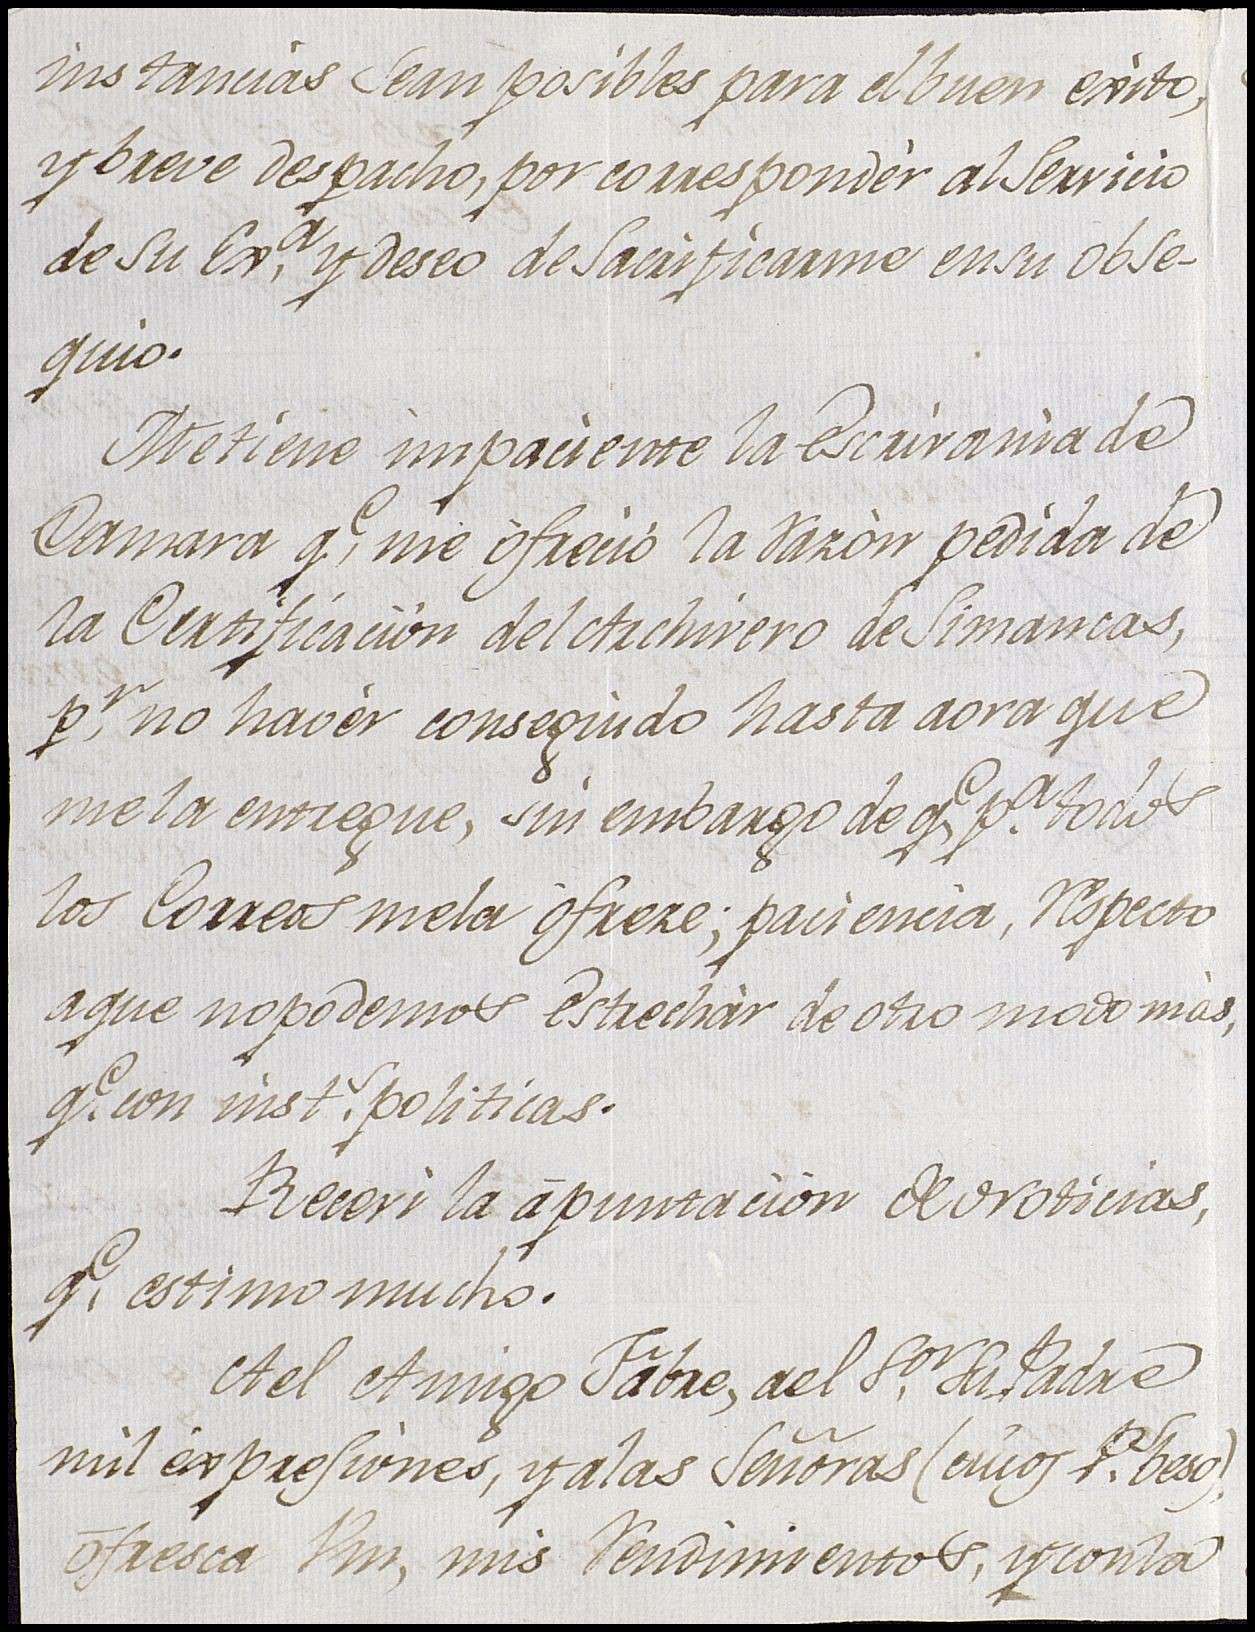 instancias sean posibles para el buen exito,
y breve despacho, por correspondèr al servicio
de su Ex.ª y deseo de sacrificarme en su obse-
quio.
Me tiene impaciente la escrivania de
Camara q.e me òfreciò la razòn pedida de
la Certificaciòn del Archivero de Simancas,
p.r no havèr conseguido hasta aora que
me la entregue, sin embargo de q.e p.a todos
los Correos me la òfreze; paciencia, respecto
a que no podemos estrechàr de otro modo màs,
q.e con inst.s politicas.
Receví la apuntaciòn de noticias,
q.e estimo mucho.
A el Amigo Fabre, a el S.or su Padre
mil expresiones, y a las Señoras (cuios P. beso),
ofresca Vm, mis rendimientos, y con la